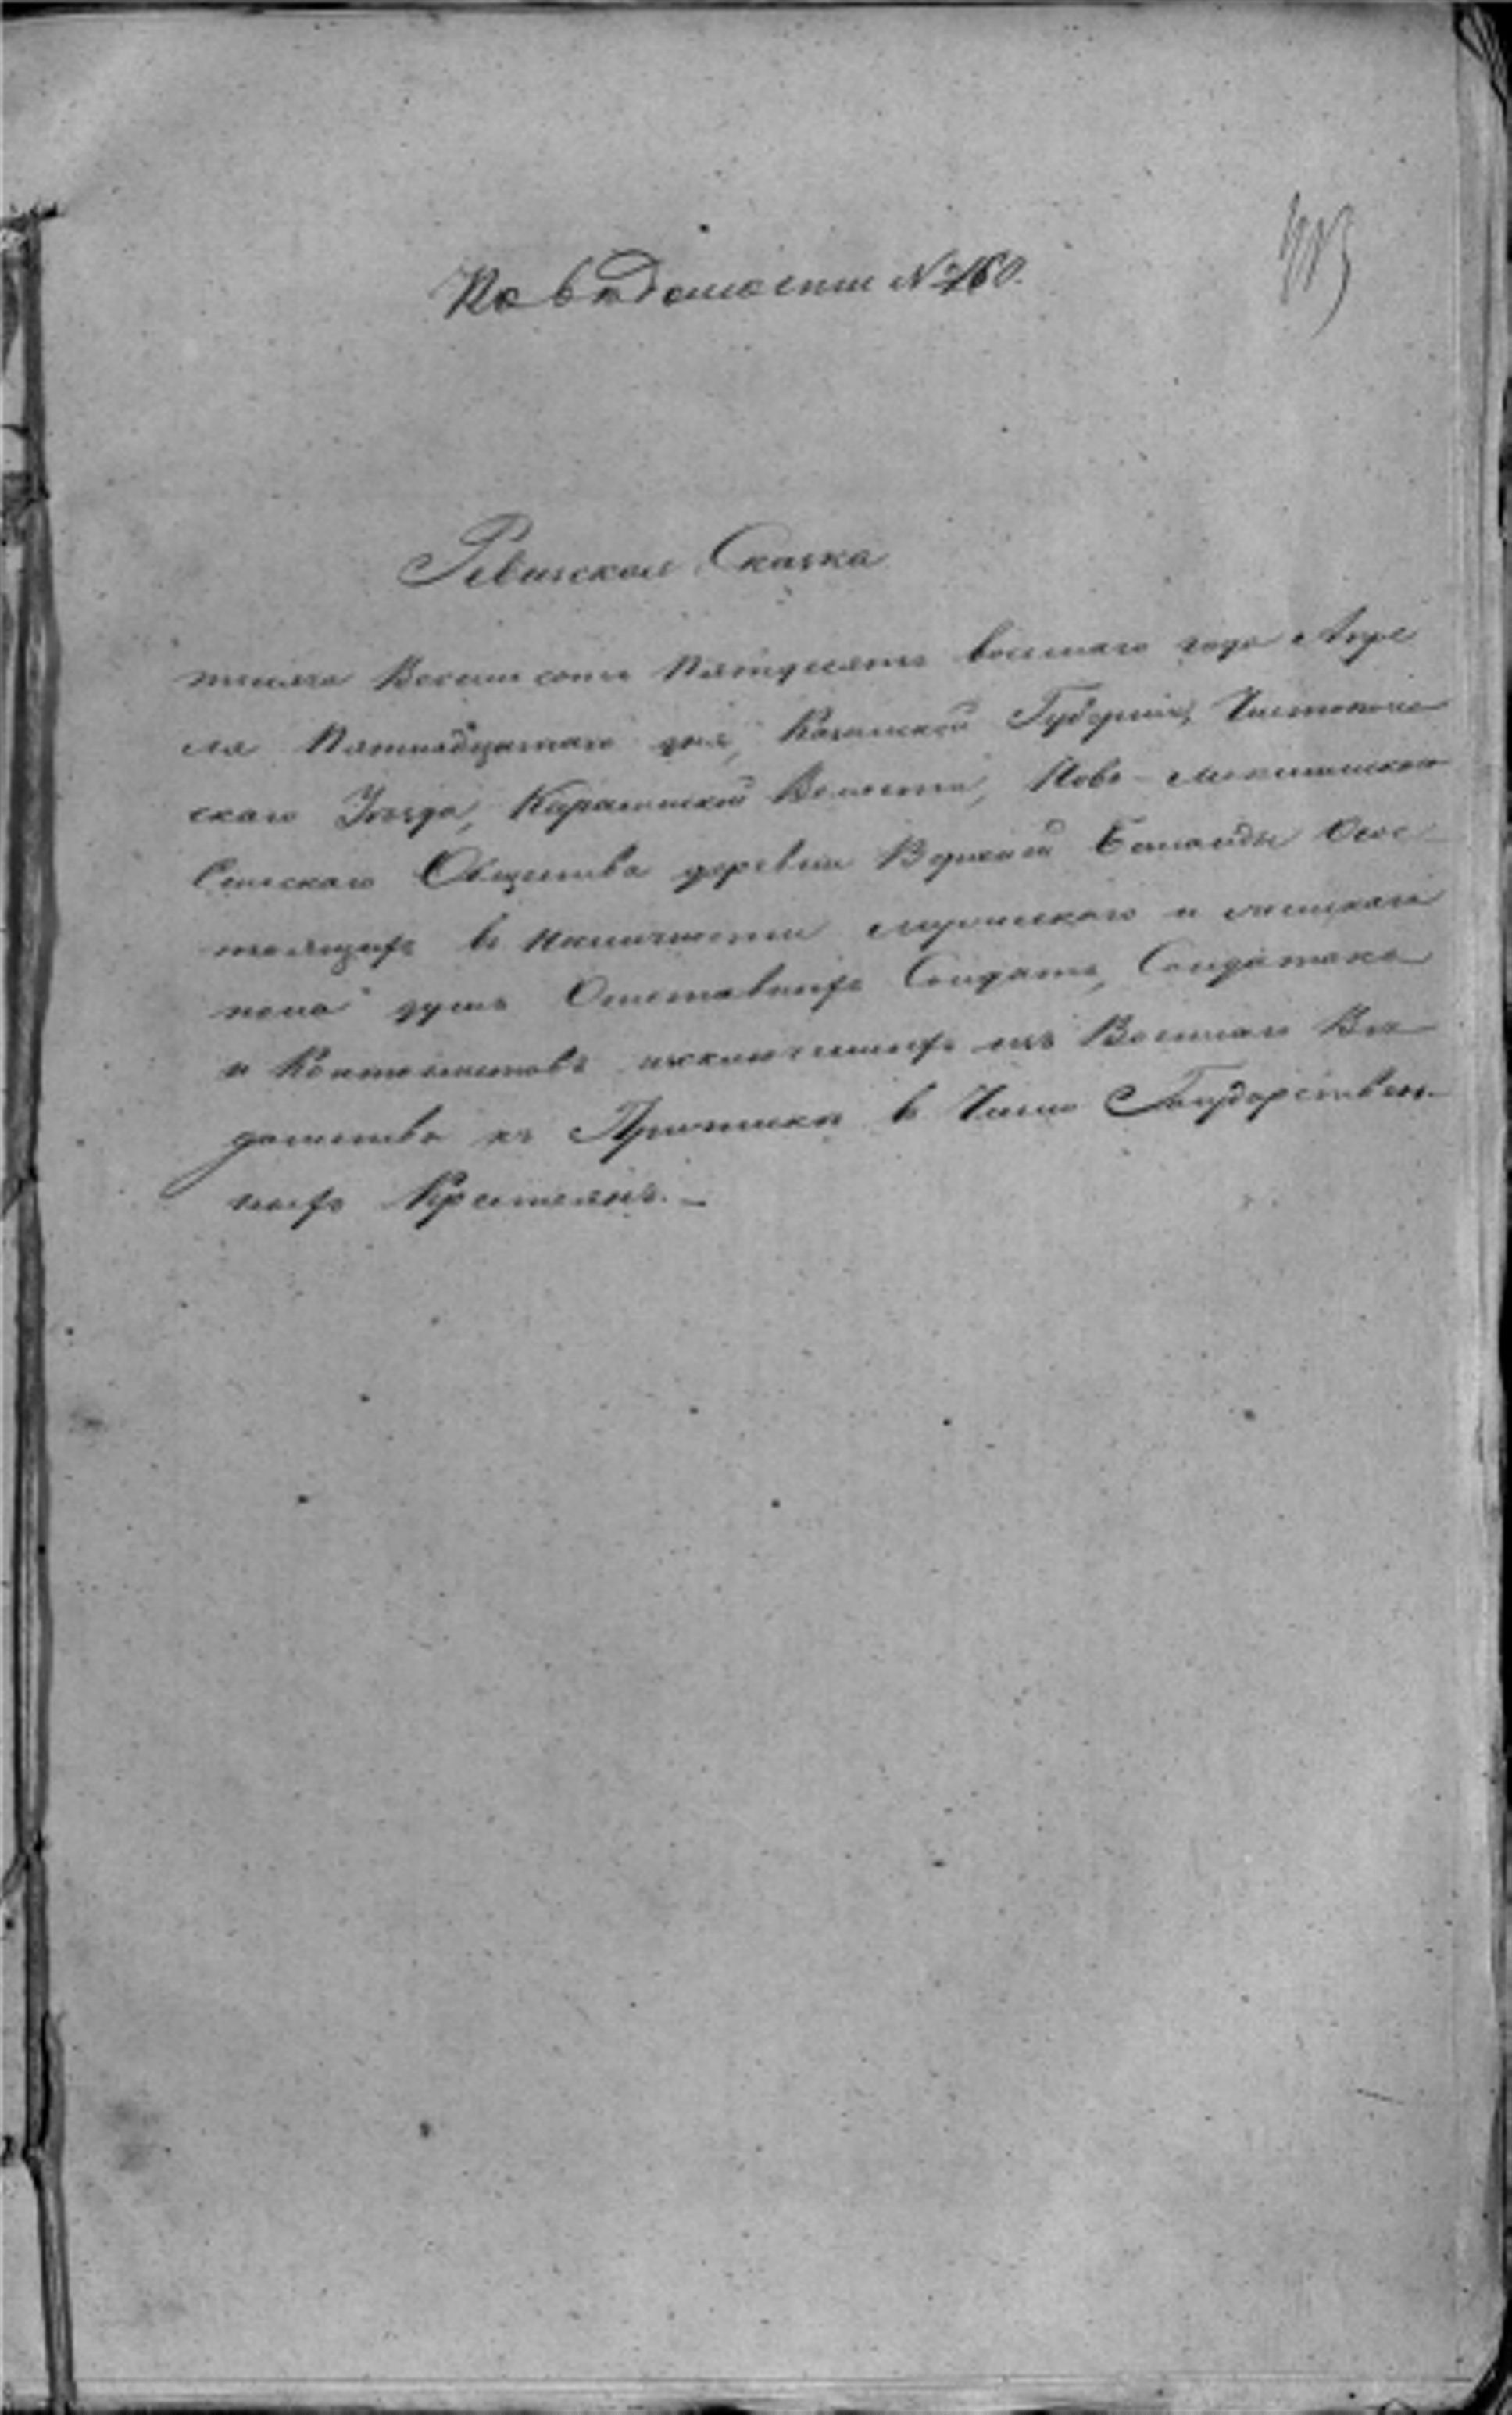 По вѣдомости № 160.
Ревизская Сказка
тысяча Восемь сотъ Пятьдесятъ восьмаго года Апре
ля Пятнадцатаго дня, Казанской Губерніи, Чистополь
скаго Уѣзда, Волости, Ново-
Сельскаго Общества деревни Верхней Состо
ящихъ въ наличности мужескаго и женскаго
пола душъ Отставныхъ Солдатъ, Солдатокъ
и Кантонистовъ исключенныхъ изъ Военнаго Вѣ
домства къ Причислен въ Число Государствен-
ныхъ Крестьянъ. —